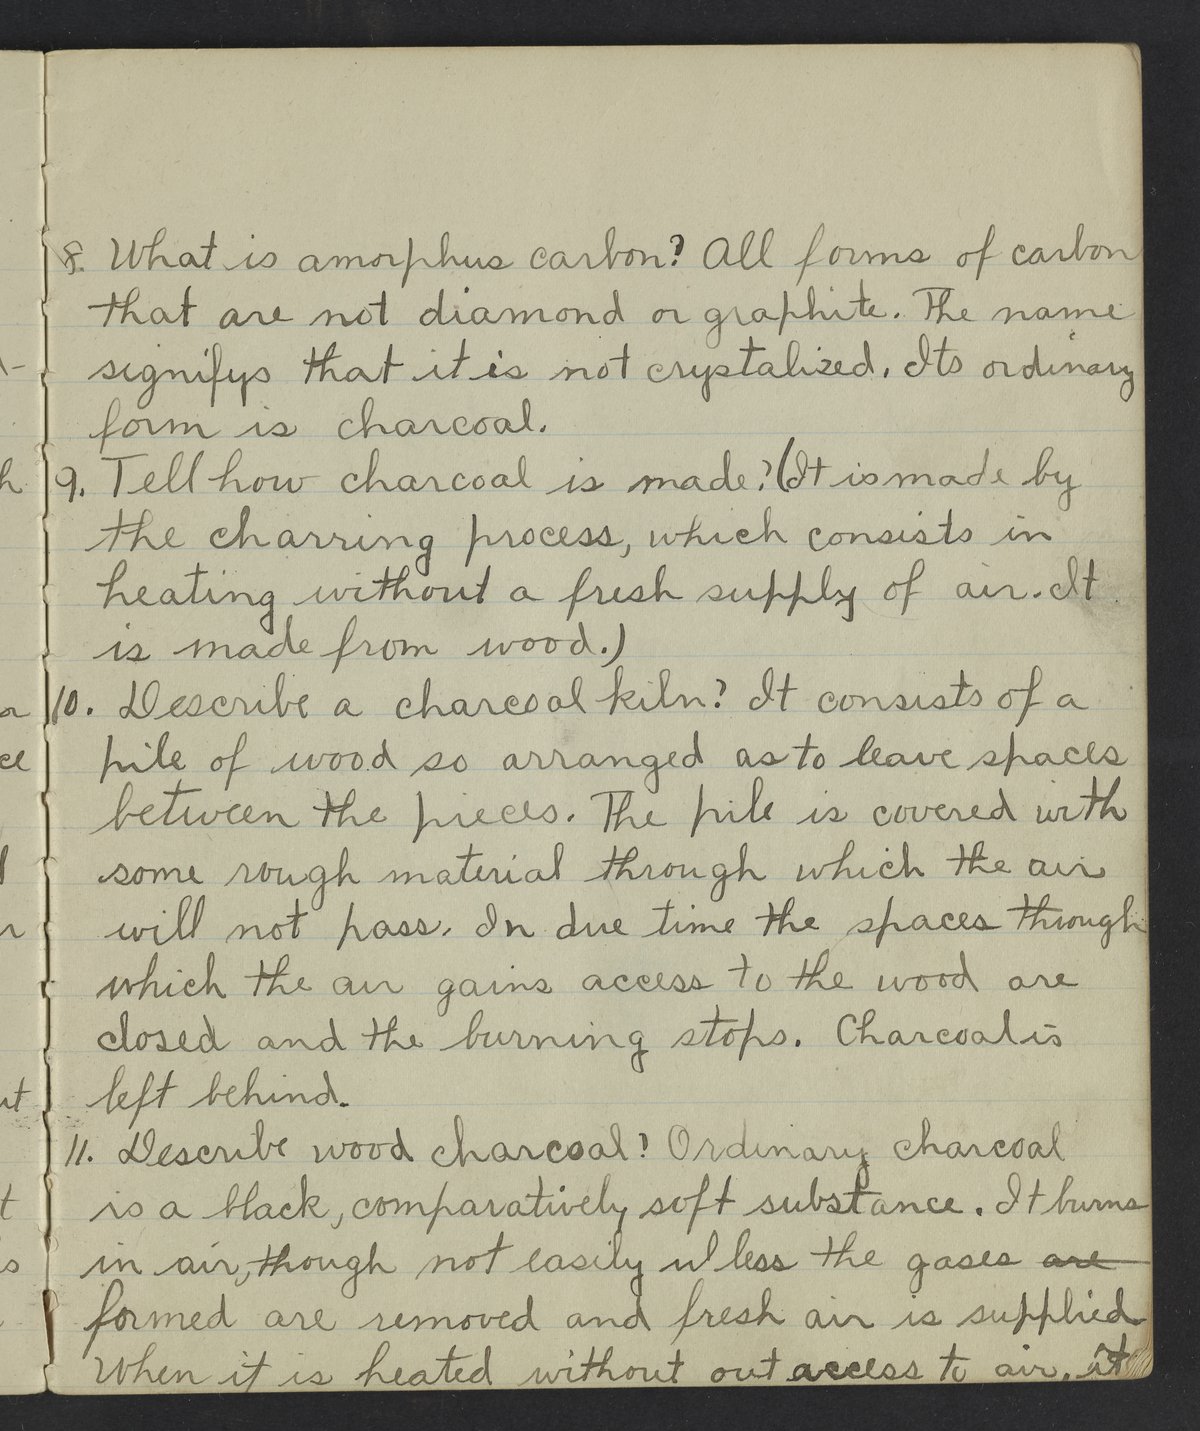 8. What is amorphus carbon? All forms of carbon
that are not diamond or graphite. The name
signifys that it is not crystalized. Its ordinary
form is charcoal.
9. Tell how charcoal is made? (It is made by
the charring process, which consists in
heating without a fresh supply of air. It
is made from wood.)
10. Describe a charcoal kiln? It consists of a
pile of wood so arranged as to leave spaces
between the pieces. The pile is covered with
some rough material through which the air
will not pass. In due time the spaces through
which the air gains access to the wood are
closed and the burning stops. Charcoal is
left behind.
11. Describe wood charcoal? Ordinary charcoal
is a black, comparatively soft substance. It burns
in air, though not easily unless the gases are
formed are removed and fresh air is supplied
When it is heated without out access to air, it